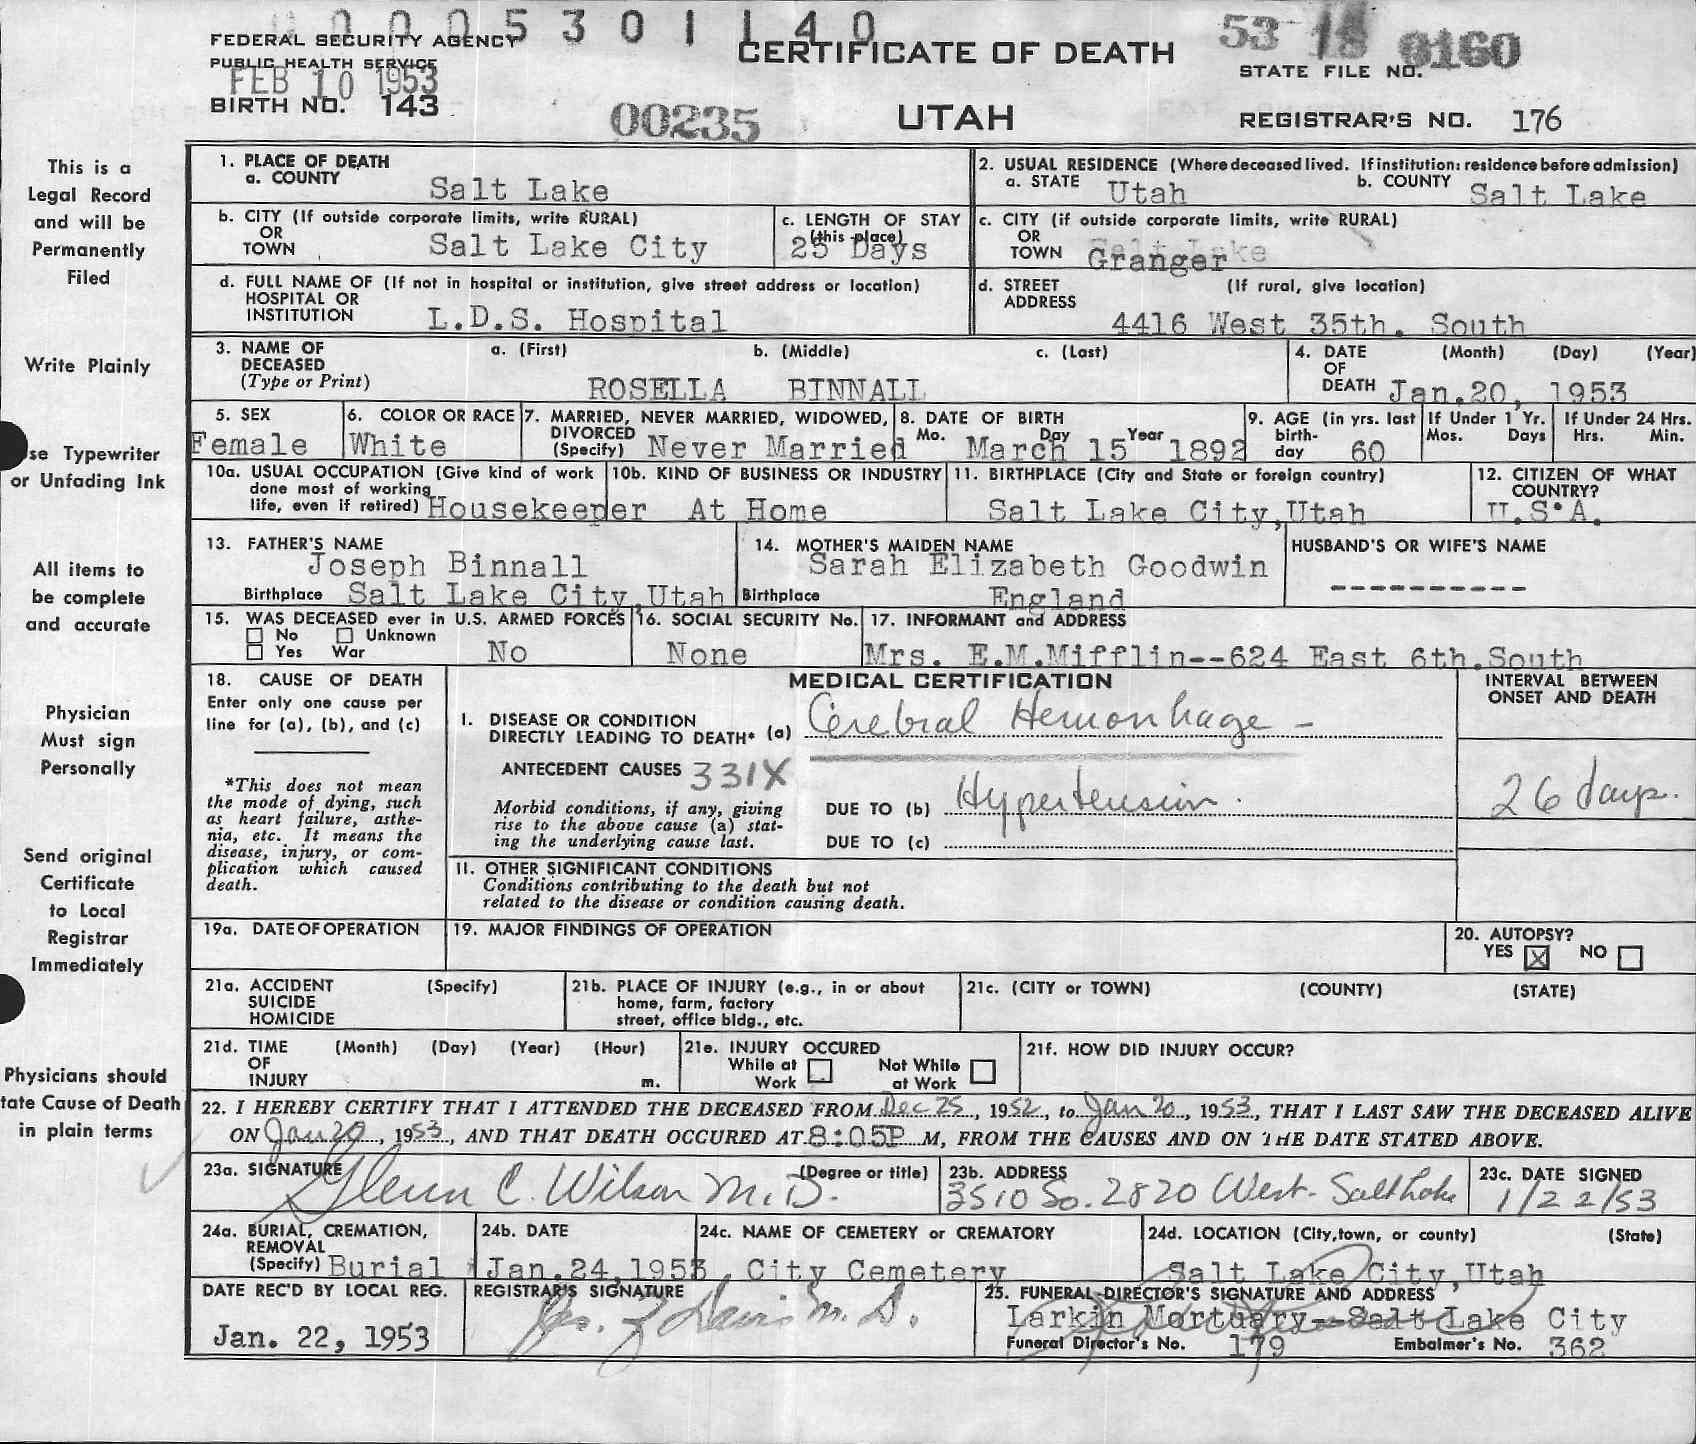 0005301140
FEDERAL SECURITY AGENCY
PUBLIC HEALTH SERVICE
FEB 10 1953
BIRTH NO. 143
CERTIFICATE OF DEATH
00235
UTAH
53 18 0160
STATE FILE NO.
REGISTRAR'S NO. 176
This is a
Legal Record
and will be
Permanently
Filed
Write Plainly
se Typewriter
or Unfading Ink
All items to
be complete
and accurate
Physician
Must sign
Personally
Send original
Certificate
to Local
Registrar
Immediately
Physicians should
tate Cause of Death
in plain terms
1. PLACE OF DEATH
a. COUNTY Salt Lake
2. USUAL RESIDENCE (Where deceased lived. If institution: residence before admission)
a. STATE Utah b. COUNTY Salt Lake
b. CITY (If outside corporate limits, write RURAL)
OR
TOWN Salt Lake City
c. LENGTH OF STAY
(this place)
25 Days
c. CITY (if outside corporate limits, write RURAL)
OR
TOWN Granger
d. FULL NAME OF (If not in hospital or institution, give street address or location)
HOSPITAL OR
INSTITUTION L.D.S. Hospital
d. STREET (If rural, give location)
ADDRESS
4416 West 35th. South
3. NAME OF a. (First) b. (Middle) c. (Last)
DECEASED
(Type or Print)
ROSELLA BINNALL
4. DATE (Month) (Day) (Year)
OF
DEATH Jan.20, 1953
5. SEX
Female
6. COLOR OR RACE
White
7. MARRIED, NEVER MARRIED, WIDOWED,
DIVORCED
(Specify) Never Married
8. DATE OF BIRTH
Mo. Day Year
March 15 1892
9. AGE (in yrs. last
birth-
day 60
If Under 1 Yr.
Mos. Days
If Under 24 Hrs.
Hrs. Min.
10a. USUAL OCCUPATION (Give kind of work
done most of working
life, even if retired) Housekeeper
10b. KIND OF BUSINESS OR INDUSTRY
At Home
11. BIRTHPLACE (City and State or foreign country)
Salt Lake City, Utah
12. CITIZEN OF WHAT
COUNTRY?
U.S.A.
13. FATHER'S NAME
Joseph Binnall
Birthplace Salt Lake City, Utah
14. MOTHER'S MAIDEN NAME
Sarah Elizabeth Goodwin
Birthplace England
HUSBAND'S OR WIFE'S NAME
----------
15. WAS DECEASED ever in U.S. ARMED FORCES
No Unknown
Yes War No
16. SOCIAL SECURITY No.
None
17. INFORMANT and ADDRESS
Mrs. E.M.Mifflin--624 East 6th.South
18. CAUSE OF DEATH
Enter only one cause per
line for (a), (b), and (c)
*This does not mean
the mode of dying, such
as heart failure, asthe-
nia, etc. It means the
disease, injury, or com-
plication which caused
death.
MEDICAL CERTIFICATION
I. DISEASE OR CONDITION
DIRECTLY LEADING TO DEATH* (a) Cerebral Hemorrhage -
ANTECEDENT CAUSES 331X
Morbid conditions, if any, giving
rise to the above cause (a) stat-
ing the underlying cause last.
DUE TO (b) Hypertension.
DUE TO (c)
INTERVAL BETWEEN
ONSET AND DEATH
26 days.
II. OTHER SIGNIFICANT CONDITIONS
Conditions contributing to the death but not
related to the disease or condition causing death.
19a. DATE OF OPERATION
19. MAJOR FINDINGS OF OPERATION
20. AUTOPSY?
YES X NO
21a. ACCIDENT (Specify)
SUICIDE
HOMICIDE
21b. PLACE OF INJURY (e.g., in or about
home, farm, factory
street, office bldg., etc.
21c. (CITY or TOWN) (COUNTY) (STATE)
21d. TIME (Month) (Day) (Year) (Hour)
OF
INJURY m.
21e. INJURY OCCURED
While at Not While
Work at Work
21f. HOW DID INJURY OCCUR?
22. I HEREBY CERTIFY THAT I ATTENDED THE DECEASED FROM Dec 25, 1952, to Jan 20, 1953, THAT I LAST SAW THE DECEASED ALIVE
ON Jan 20, 1953, AND THAT DEATH OCCURED AT 8:05P M, FROM THE CAUSES AND ON THE DATE STATED ABOVE.
23a. SIGNATURE (Degree or title)
Glenn C. Wilson M.D.
23b. ADDRESS
3510 So. 2820 West - Salt Lake
23c. DATE SIGNED
1/22/53
24a. BURIAL, CREMATION,
REMOVAL
(Specify) Burial
24b. DATE
Jan.24,1953
24c. NAME OF CEMETERY or CREMATORY
City Cemetery
24d. LOCATION (City,town, or county) (State)
Salt Lake City, Utah
DATE REC'D BY LOCAL REG.
Jan. 22, 1953
REGISTRAR'S SIGNATURE
Davis M.D.
25. FUNERAL DIRECTOR'S SIGNATURE AND ADDRESS
Larkin Mortuary--Salt Lake City
Funeral Director's No. 179 Embalmer's No. 362